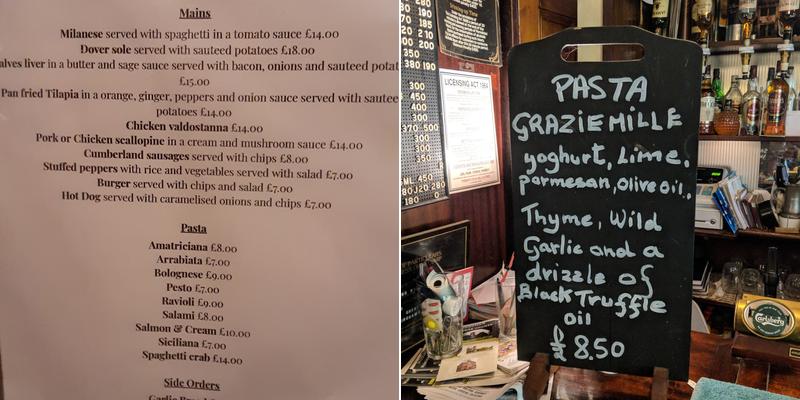 Mains
Milanese served with spaghetti in a tomato sauce £14.00
Dover sole served with sauteed potatoes £18.00
alves liver in a butter and sage sauce served with bacon, onions and sauteed potat
£15.00
Pan fried Tilapia in a orange, ginger, peppers and onion sauce served with sautee
potatoes £14.00
Chicken valdostanna £14.00
Pork or Chicken scallopine in a cream and mushroom sauce £14.00
Cumberland sausages served with chips £8.00
Stuffed peppers with rice and vegetables served with salad £7.00
Burger served with chips and salad £7.00
Hot Dog served with caramelised onions and chips £7.00
Pasta
Amatriciana £8.00
Arrabiata £7.00
Bolognese £9.00
Pesto £7.00
Ravioli £9.00
Salami £8.00
Salmon & Cream £10.00
Siciliana £7.00
Spaghetti crab £14.00
Side Orders
LICENSING ACT 1964
PASTA
GRAZIEMILLE
yoghurt, Lime,
parmesan, olive oil,
Thyme, Wild
Garlic and a
drizzle of
Black Truffle
oil
£8.50
Carlsberg